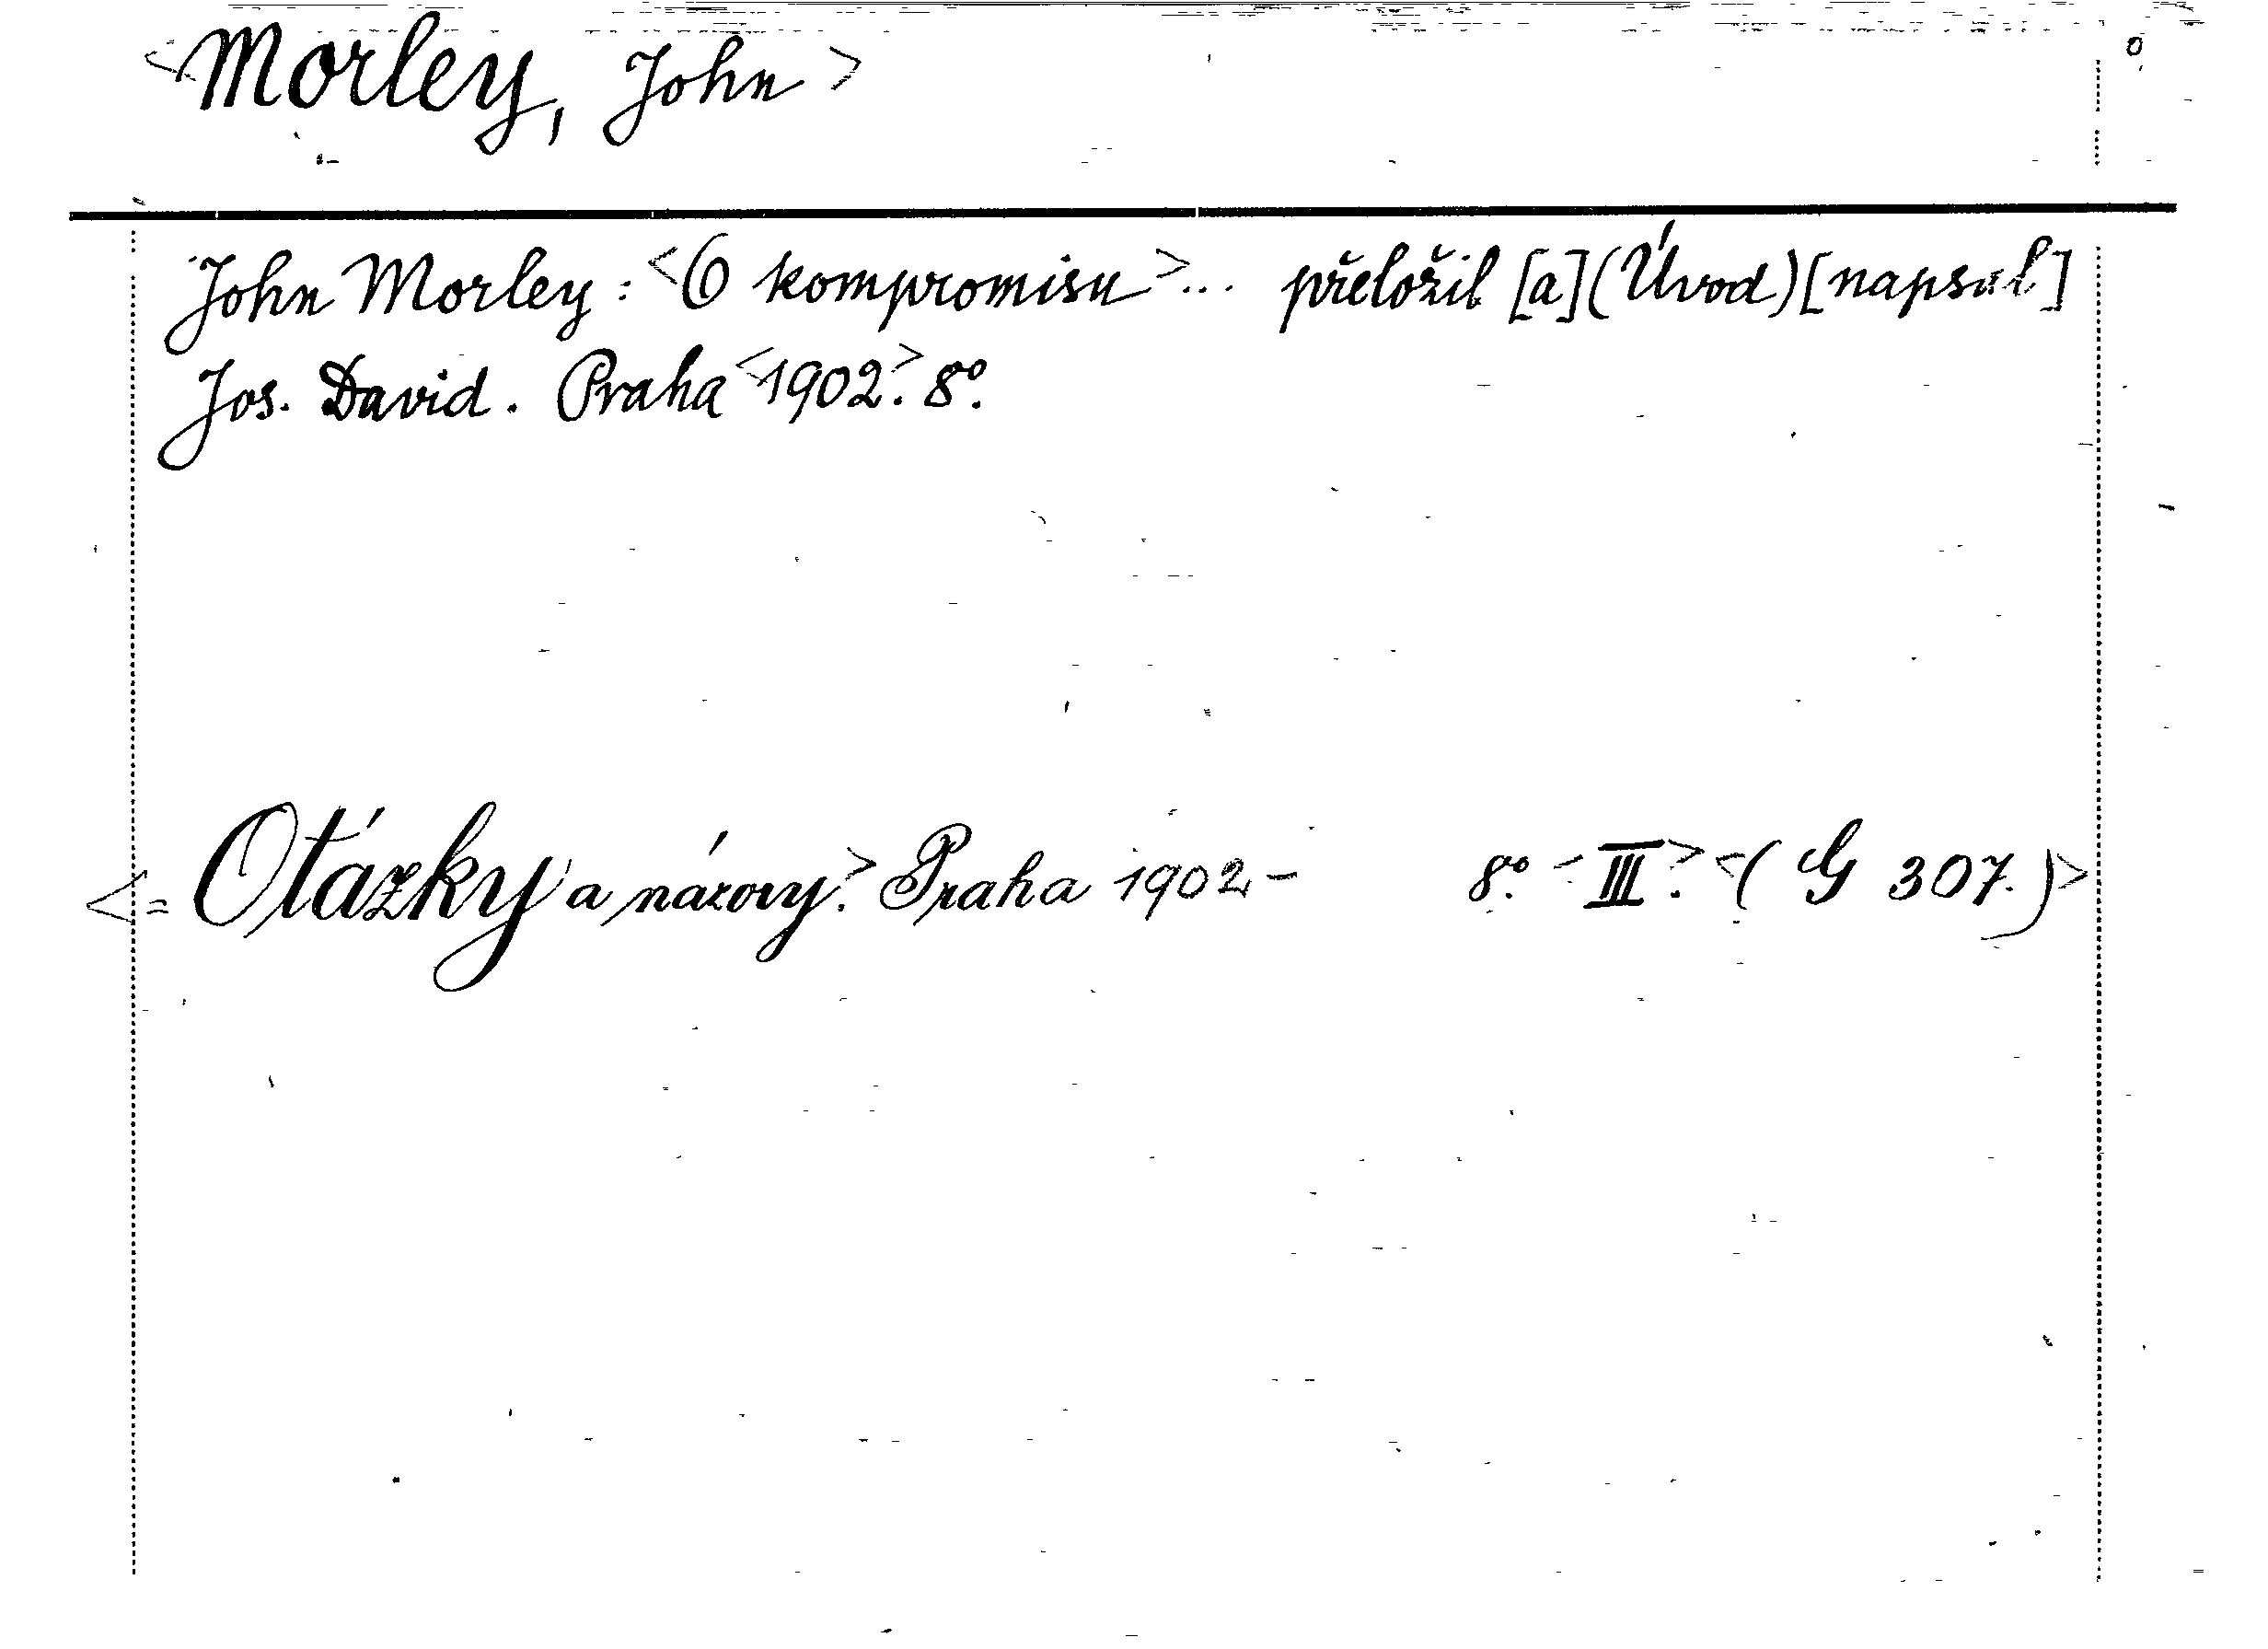 <Morley, John>
John Morley: <O kompromisu>... přeložil [a](Úvod)[napsal]
Jos. David. Praha <1902.> 8º.
<= Otázky a názory.> Praha 1902- 8º. <III.> <(G 307.)>